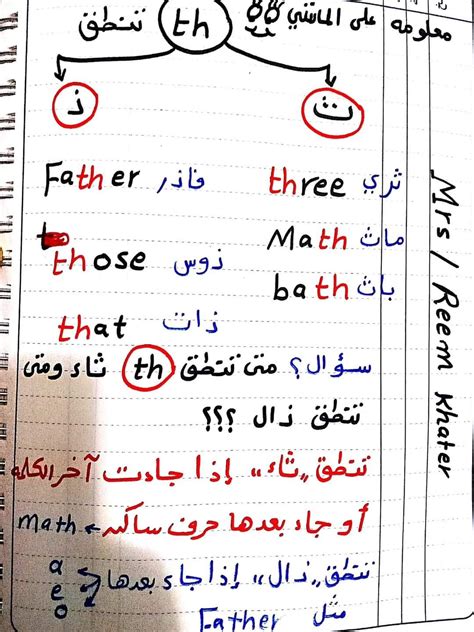 معلومه على الماشي th تنطق
ث
ذ
three ثري
Father فاذر
Math ماث
those ذوس
bath باث
that ذات
سؤال؟ متى تنطق th ثاء ومتى
تنطق ذال ؟؟؟
تنطق ,,ثاء,, إذا جاءت آخر الكلمه
أو جاء بعدها حرف ساكن ← Math
تنطق ,,ذال,, إذا جاء بعدها a e o
مثل Father
Mrs / Reem Khater